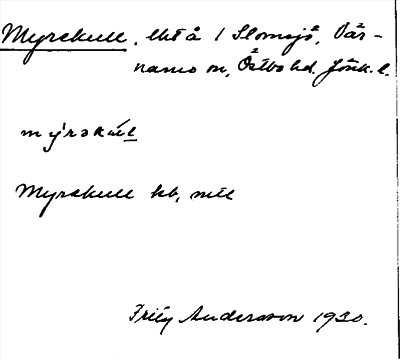 Myrekull, lht å 1 Slomsjö, Vär-
namo sn, Östbo hd. Jönk. l.
mỳrəkúl
Myrekull kb, mtl
Frity Andersson 1930.